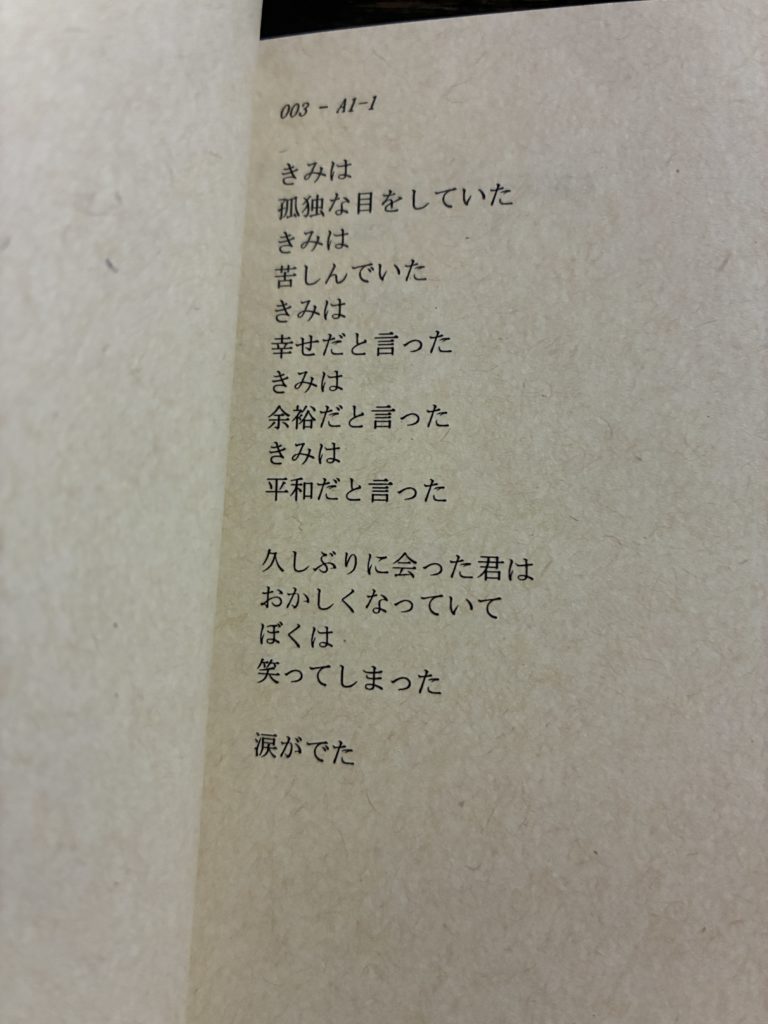 003 - A1-1
きみは
孤独な目をしていた
きみは
苦しんでいた
きみは
幸せだと言った
きみは
余裕だと言った
きみは
平和だと言った
久しぶりに会った君は
おかしくなっていて
ぼくは
笑ってしまった
涙がでた